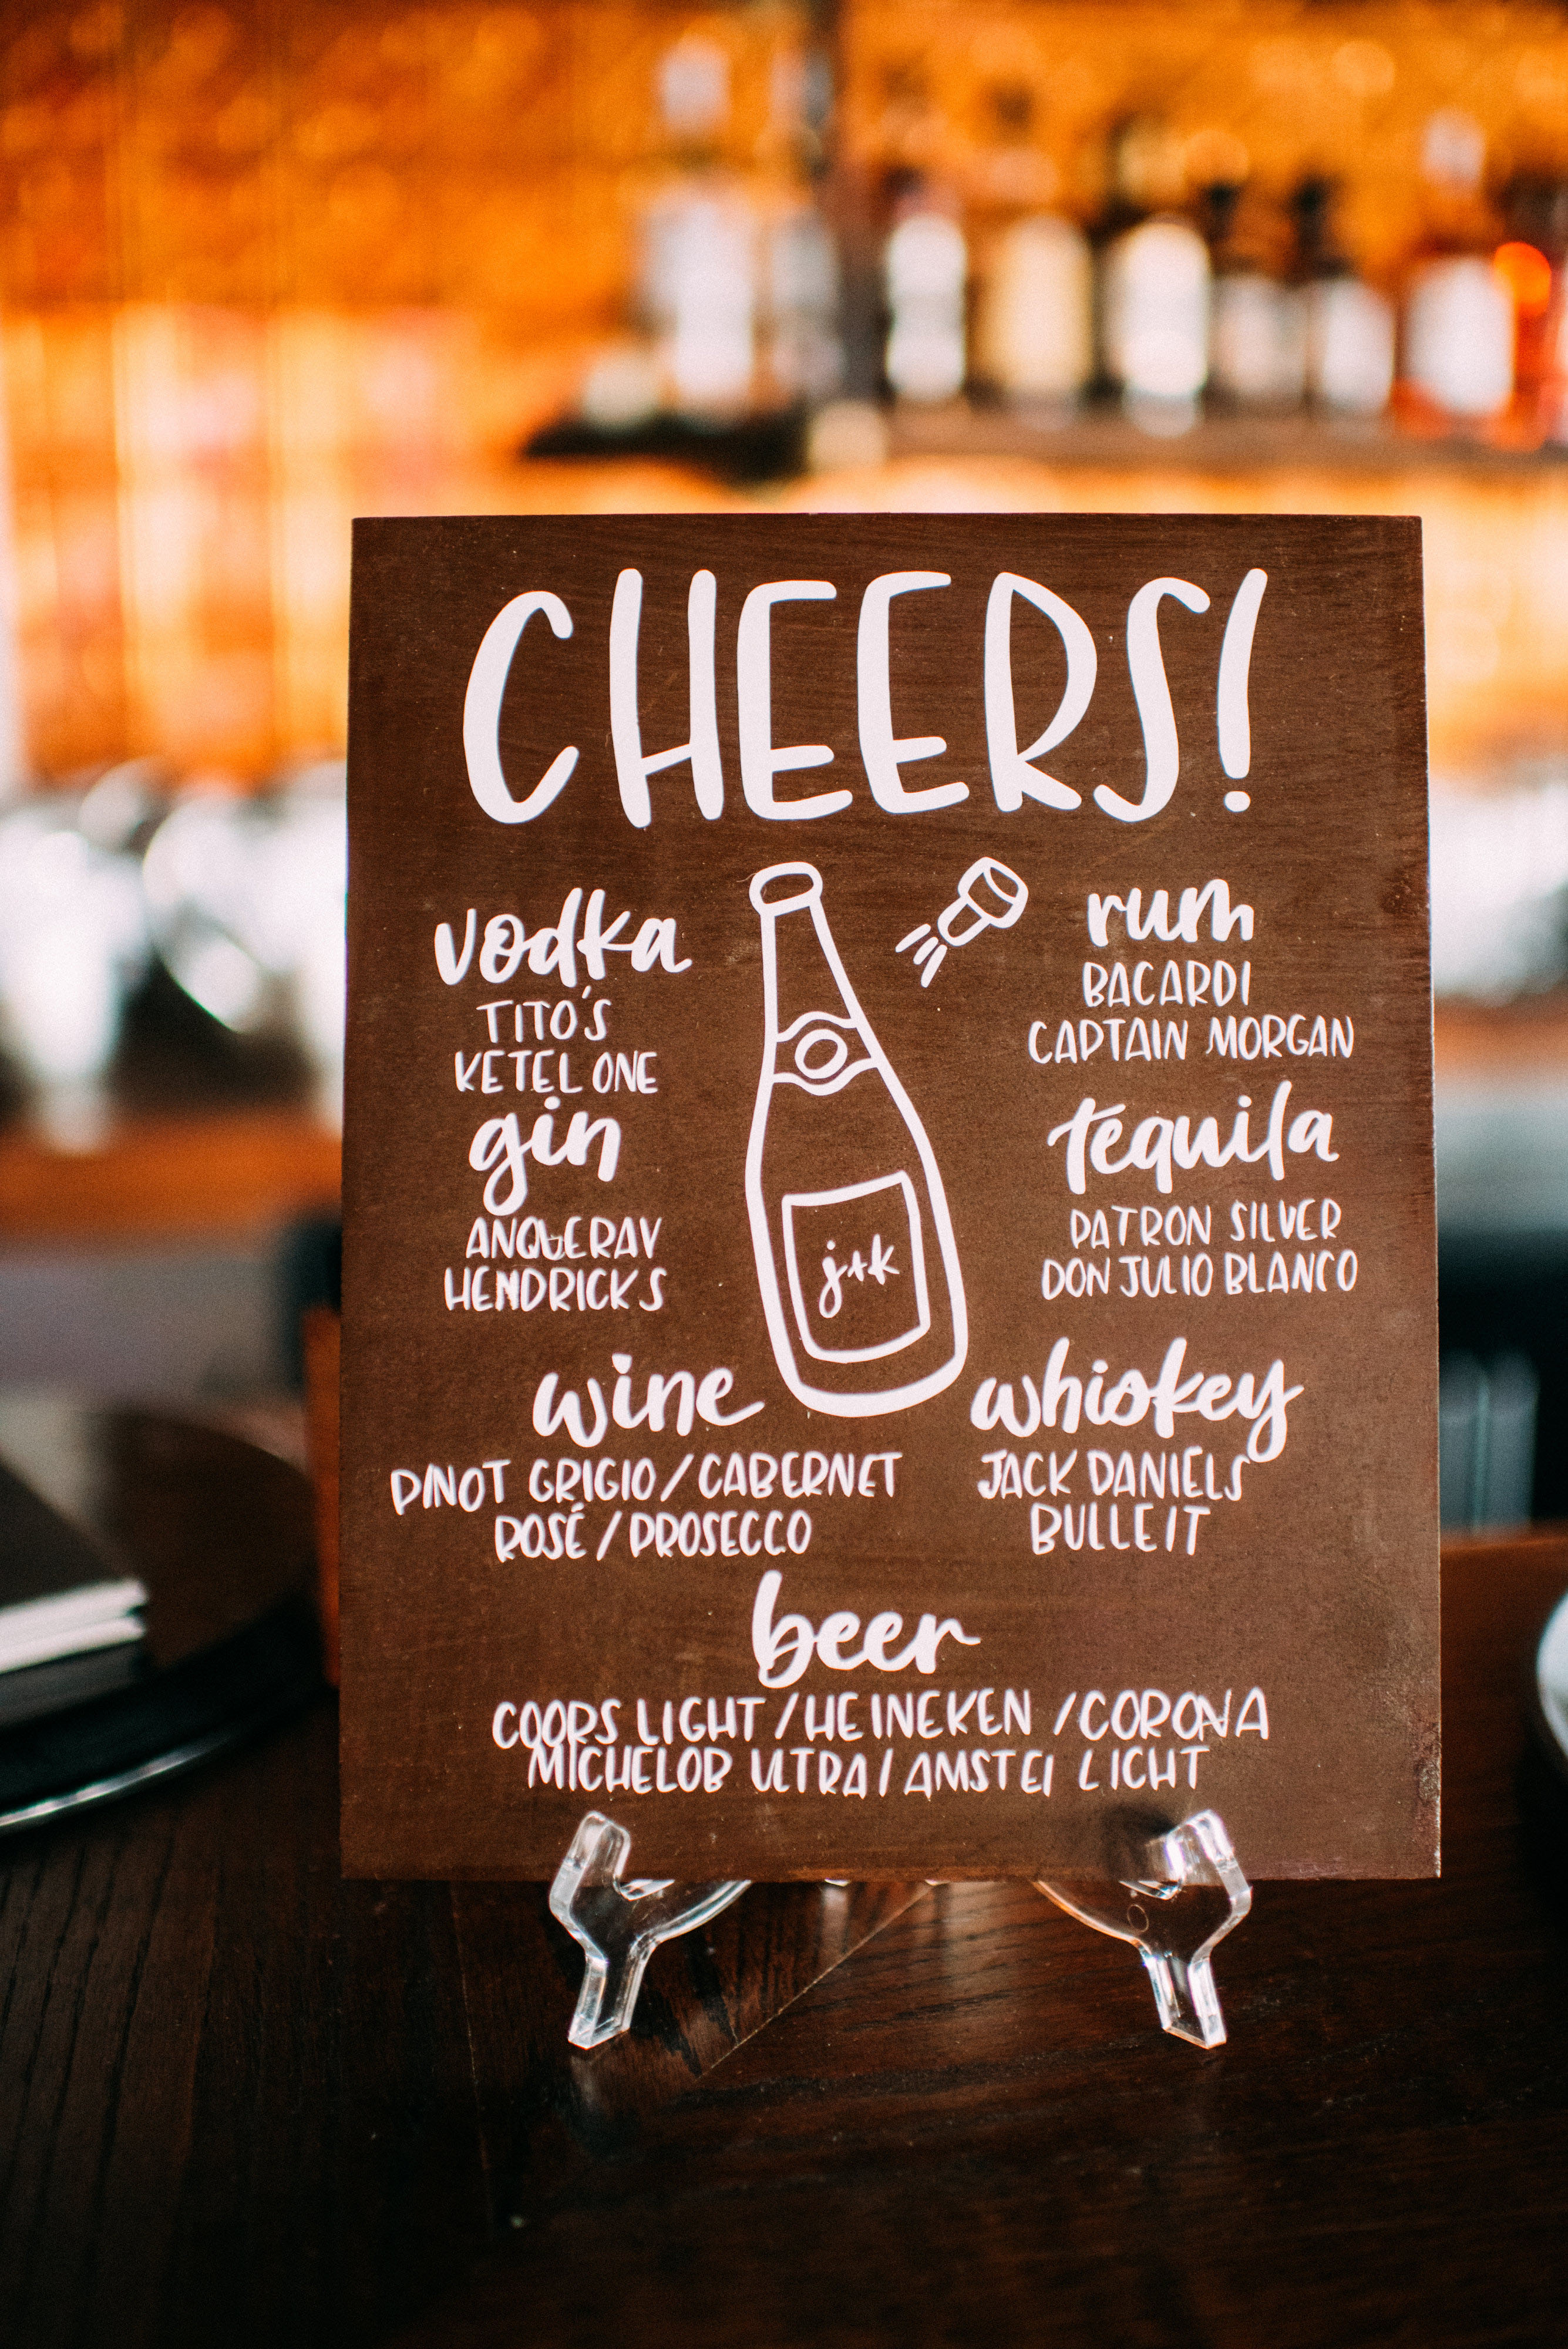 CHEERS!
vodka
TITO'S
KETEL ONE
gin
ANQUERAY
HENDRICKS
rum
BACARDI
CAPTAIN MORGAN
tequila
PATRON SILVER
DON JULIO BLANCO
j+k
wine
PINOT GRIGIO / CABERNET
ROSÉ / PROSECCO
whiskey
JACK DANIELS
BULLEIT
beer
COORS LIGHT / HEINEKEN / CORONA
MICHELOB ULTRA / AMSTEL LIGHT